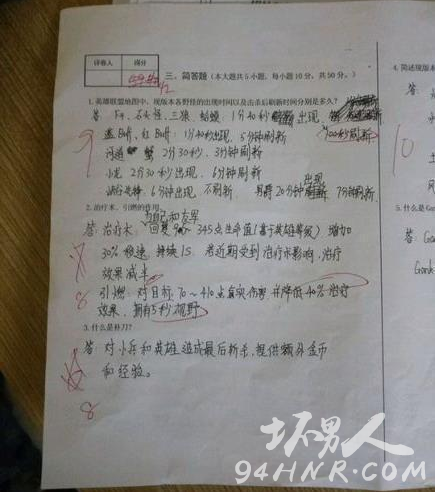 评卷人 得分
三、简答题（本大题共5小题，每小题10分，共50分。）
1. 英雄联盟地图中，现版本各野怪的出现时间以及击杀后刷新时间分别是多久？
答：F4、石头怪、三狼、蛤蟆：1分40秒 出现
100秒刷新
蓝Buff、红Buff：1分40秒出现，5分钟刷新
河道蟹 2分30秒，3分钟刷新
小龙 2分30秒出现，6分钟刷新
峡谷先锋 6分钟出现，不刷新 男爵20分钟出现 7分钟刷新
9
2. 治疗术、引燃的作用。
答：治疗术：为自己和友军回复90～345点生命值（基于英雄等级）增加
30%移速 持续1S 若近期受到治疗术影响，治疗
效果减半
引燃：对目标70～410点真实伤害 并降低40%治疗
效果，拥有5秒视野
8
3. 什么是补刀？
答：对小兵和英雄造成最后斩杀，提供额外金币
和经验。
8
4. 简述现版本
10
5. 什么是Ga
答：Gank
Gank
坏男人
94HNR.COM